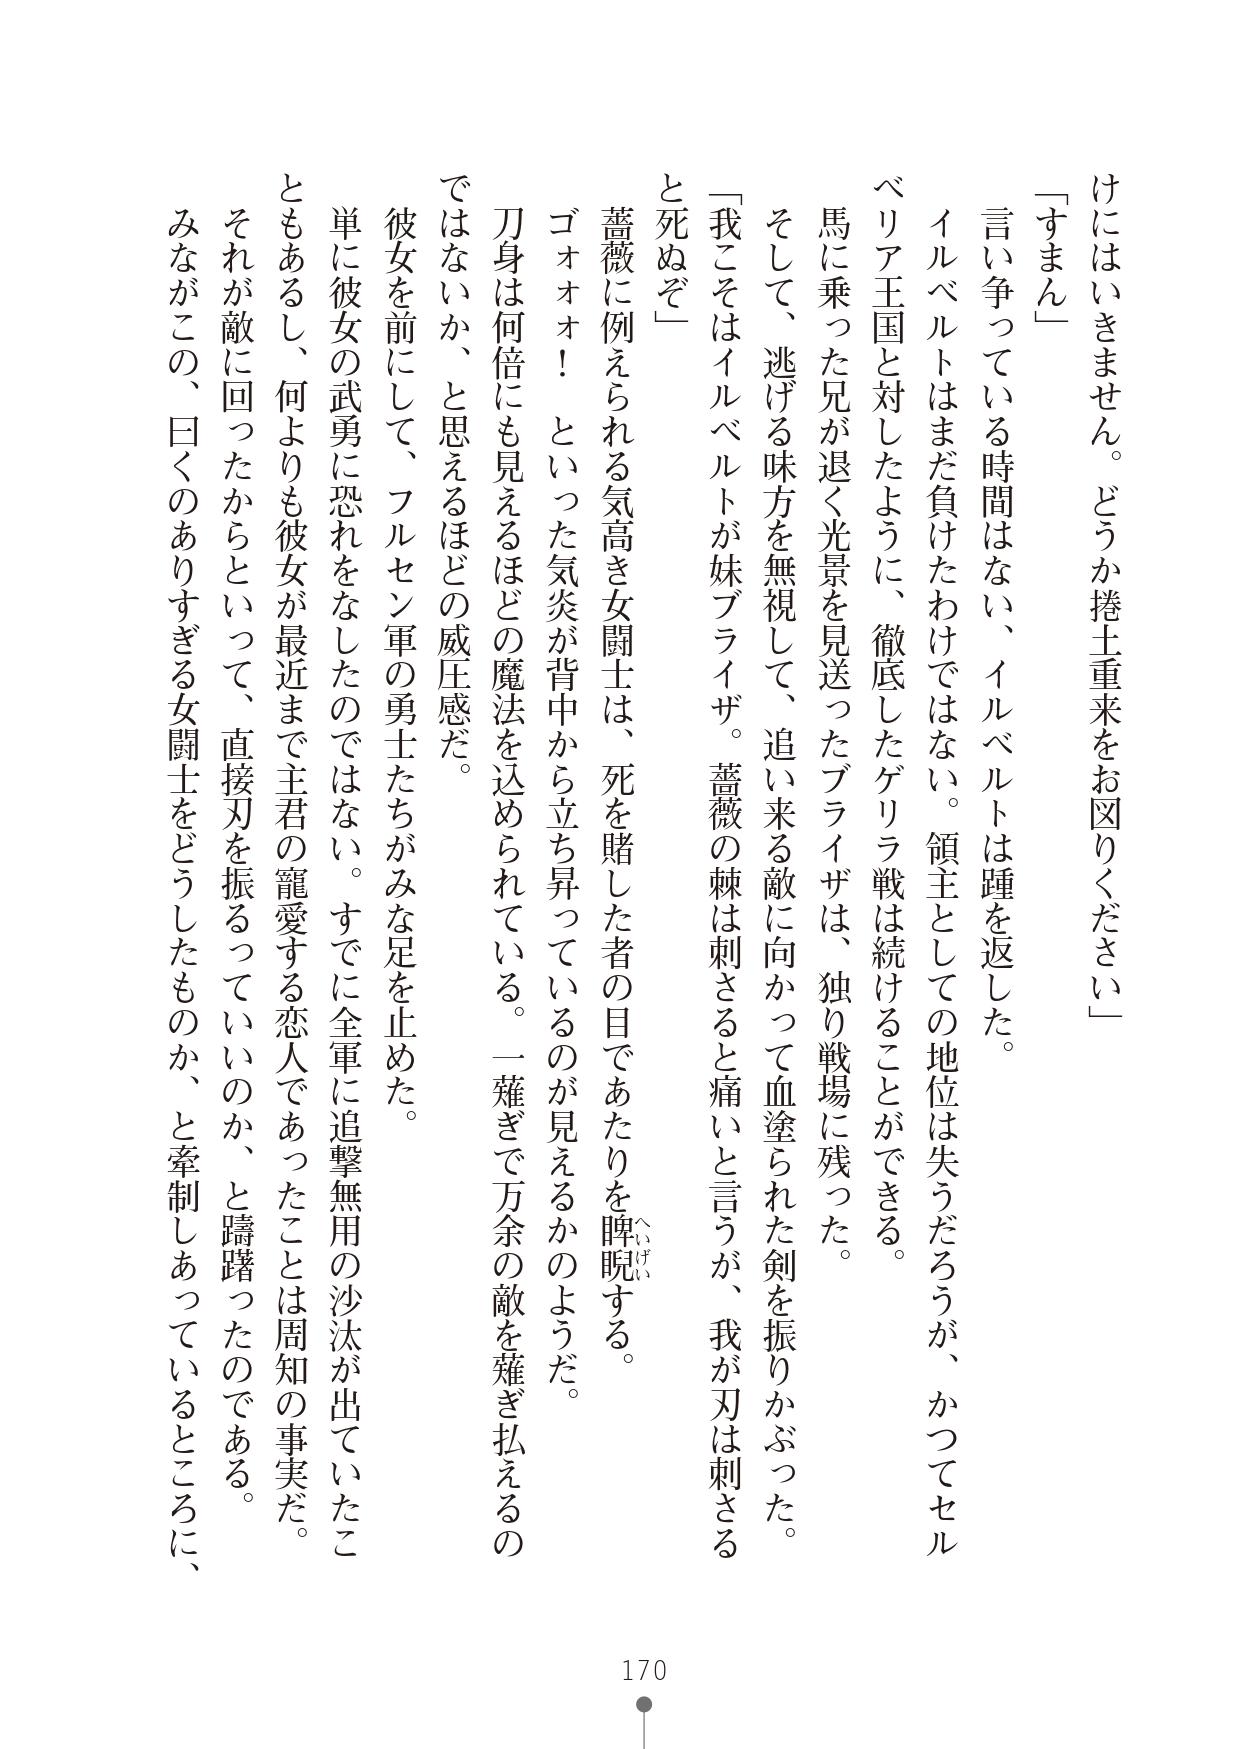 けにはいきません。どうか捲土重来をお図りください」
「すまん」
言い争っている時間はない、イルベルトは踵を返した。
イルベルトはまだ負けたわけではない。領主としての地位は失うだろうが、かつてセル
ベリア王国と対したように、徹底したゲリラ戦は続けることができる。
馬に乗った兄が退く光景を見送ったブライザは、独り戦場に残った。
そして、逃げる味方を無視して、追い来る敵に向かって血塗られた剣を振りかぶった。
「我こそはイルベルトが妹ブライザ。薔薇の棘は刺さると痛いと言うが、我が刃は刺さる
と死ぬぞ」
薔薇に例えられる気高き女闘士は、死を賭した者の目であたりを睥睨する。
へいげい
ゴォォォ!　といった気炎が背中から立ち昇っているのが見えるかのようだ。
刀身は何倍にも見えるほどの魔法を込められている。一薙ぎで万余の敵を薙ぎ払えるの
ではないか、と思えるほどの威圧感だ。
彼女を前にして、フルセン軍の勇士たちがみな足を止めた。
単に彼女の武勇に恐れをなしたのではない。すでに全軍に追撃無用の沙汰が出ていたこ
ともあるし、何よりも彼女が最近まで主君の寵愛する恋人であったことは周知の事実だ。
それが敵に回ったからといって、直接刃を振るっていいのか、と躊躇ったのである。
みながこの、曰くのありすぎる女闘士をどうしたものか、と牽制しあっているところに、
170